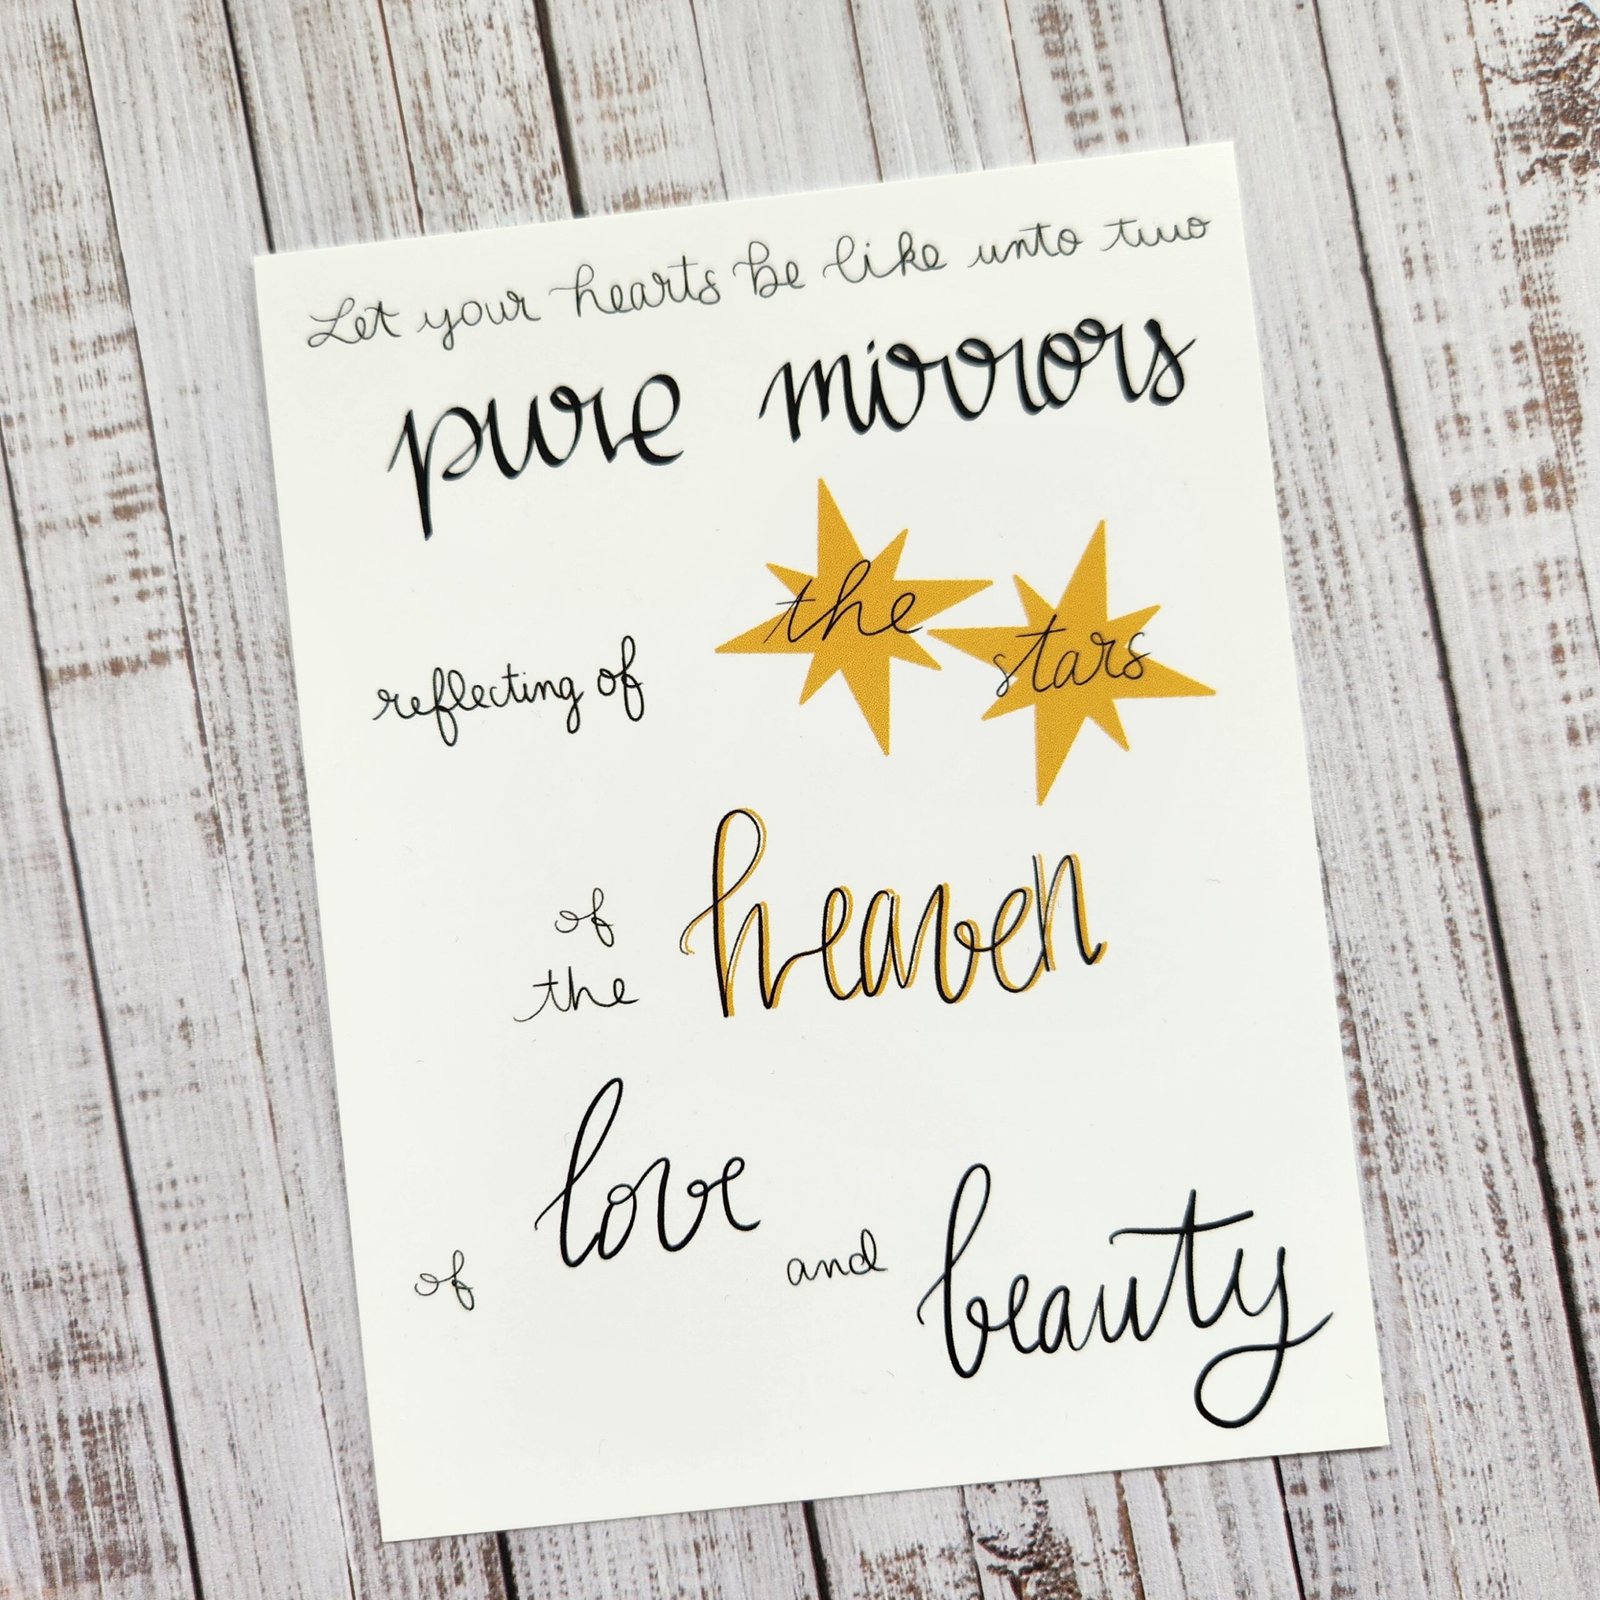 Let your hearts be like unto two
pure mirrors
reflecting of the stars
of
the heaven
of love and beauty